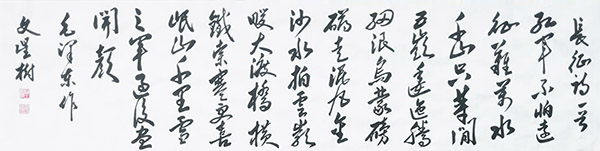 長征詩一首
紅軍不怕遠
征難萬水
千山只等閒
五嶺逶迤騰
細浪烏蒙磅
礴走泥丸金
沙水拍雲崖
暖大渡橋橫
鐵索寒更喜
岷山千里雪
三軍過後盡
開顏
毛澤東作
文樹